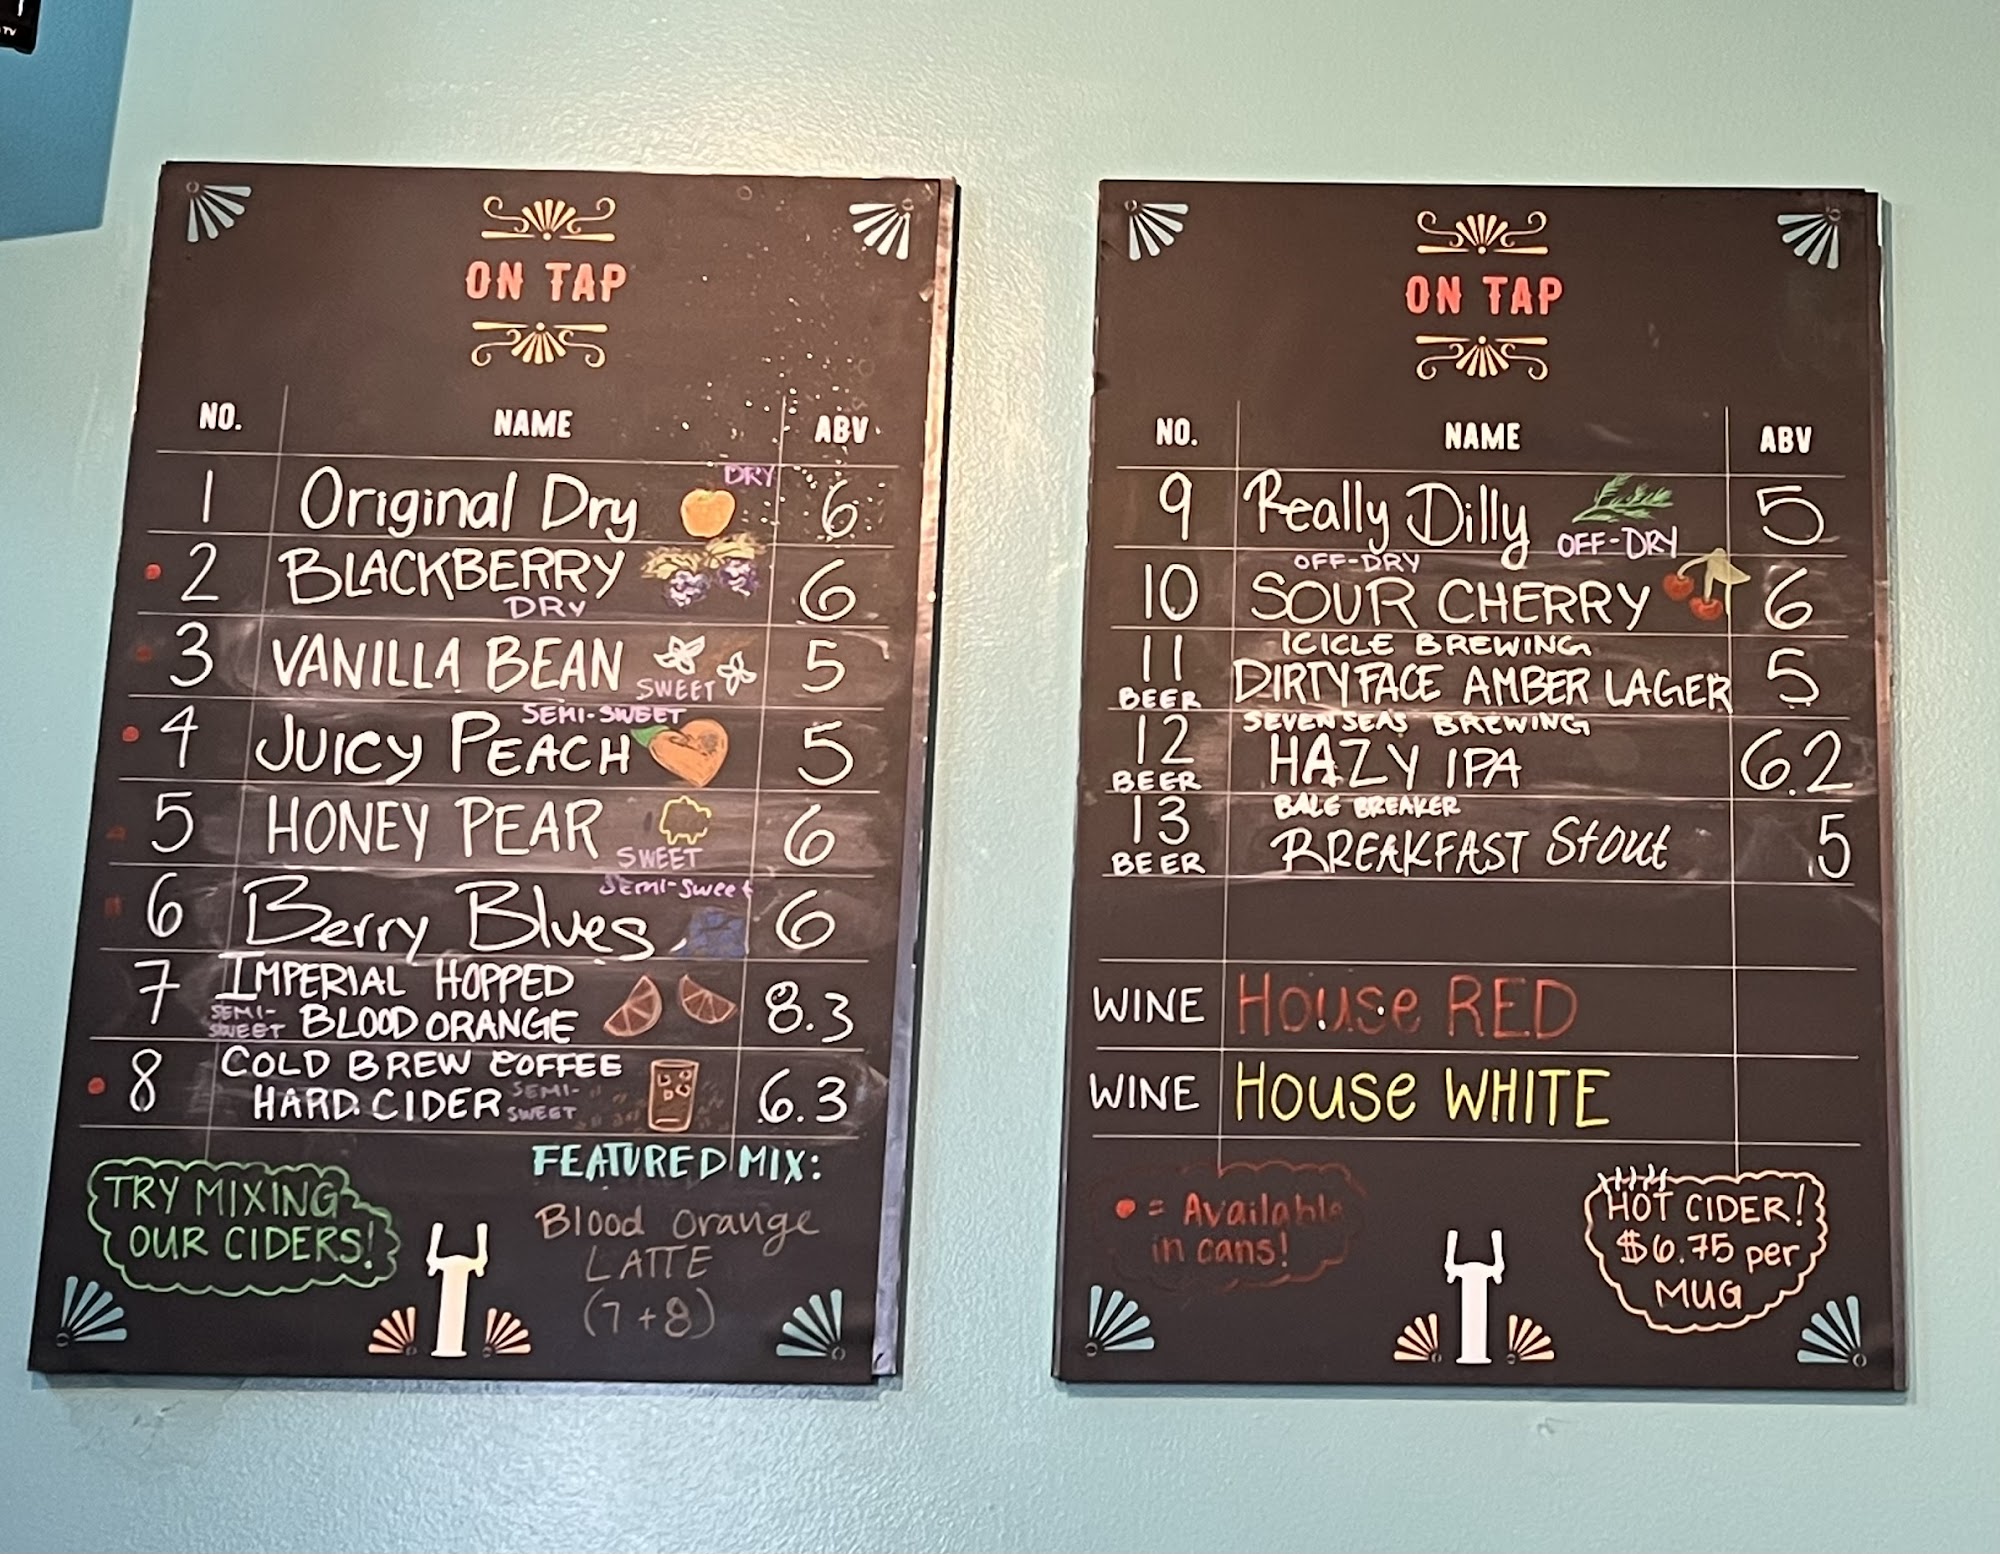 TV
ON TAP
NO. NAME ABV
1 Original Dry DRY 6
2 BLACKBERRY DRY 6
3 VANILLA BEAN SWEET 5
SEMI-SWEET
4 JUICY PEACH 5
5 HONEY PEAR SWEET 6
SEMI-Sweet
6 Berry Blues 6
7 IMPERIAL HOPPED
SEMI-SWEET BLOOD ORANGE 8.3
8 COLD BREW COFFEE
HARD CIDER SEMI-SWEET 6.3
TRY MIXING
OUR CIDERS!
FEATURED MIX:
Blood orange
LATTE
(7+8)
ON TAP
NO. NAME ABV
9 Really Dilly OFF-DRY 5
OFF-DRY
10 SOUR CHERRY 6
ICICLE BREWING
11 BEER DIRTYFACE AMBER LAGER 5
SEVEN SEAS BREWING
12 BEER HAZY IPA 6.2
BALE BREAKER
13 BEER BREAKFAST Stout .5
WINE House RED
WINE House WHITE
= Available
in cans!
HOT CIDER!
$6.75 per
MUG